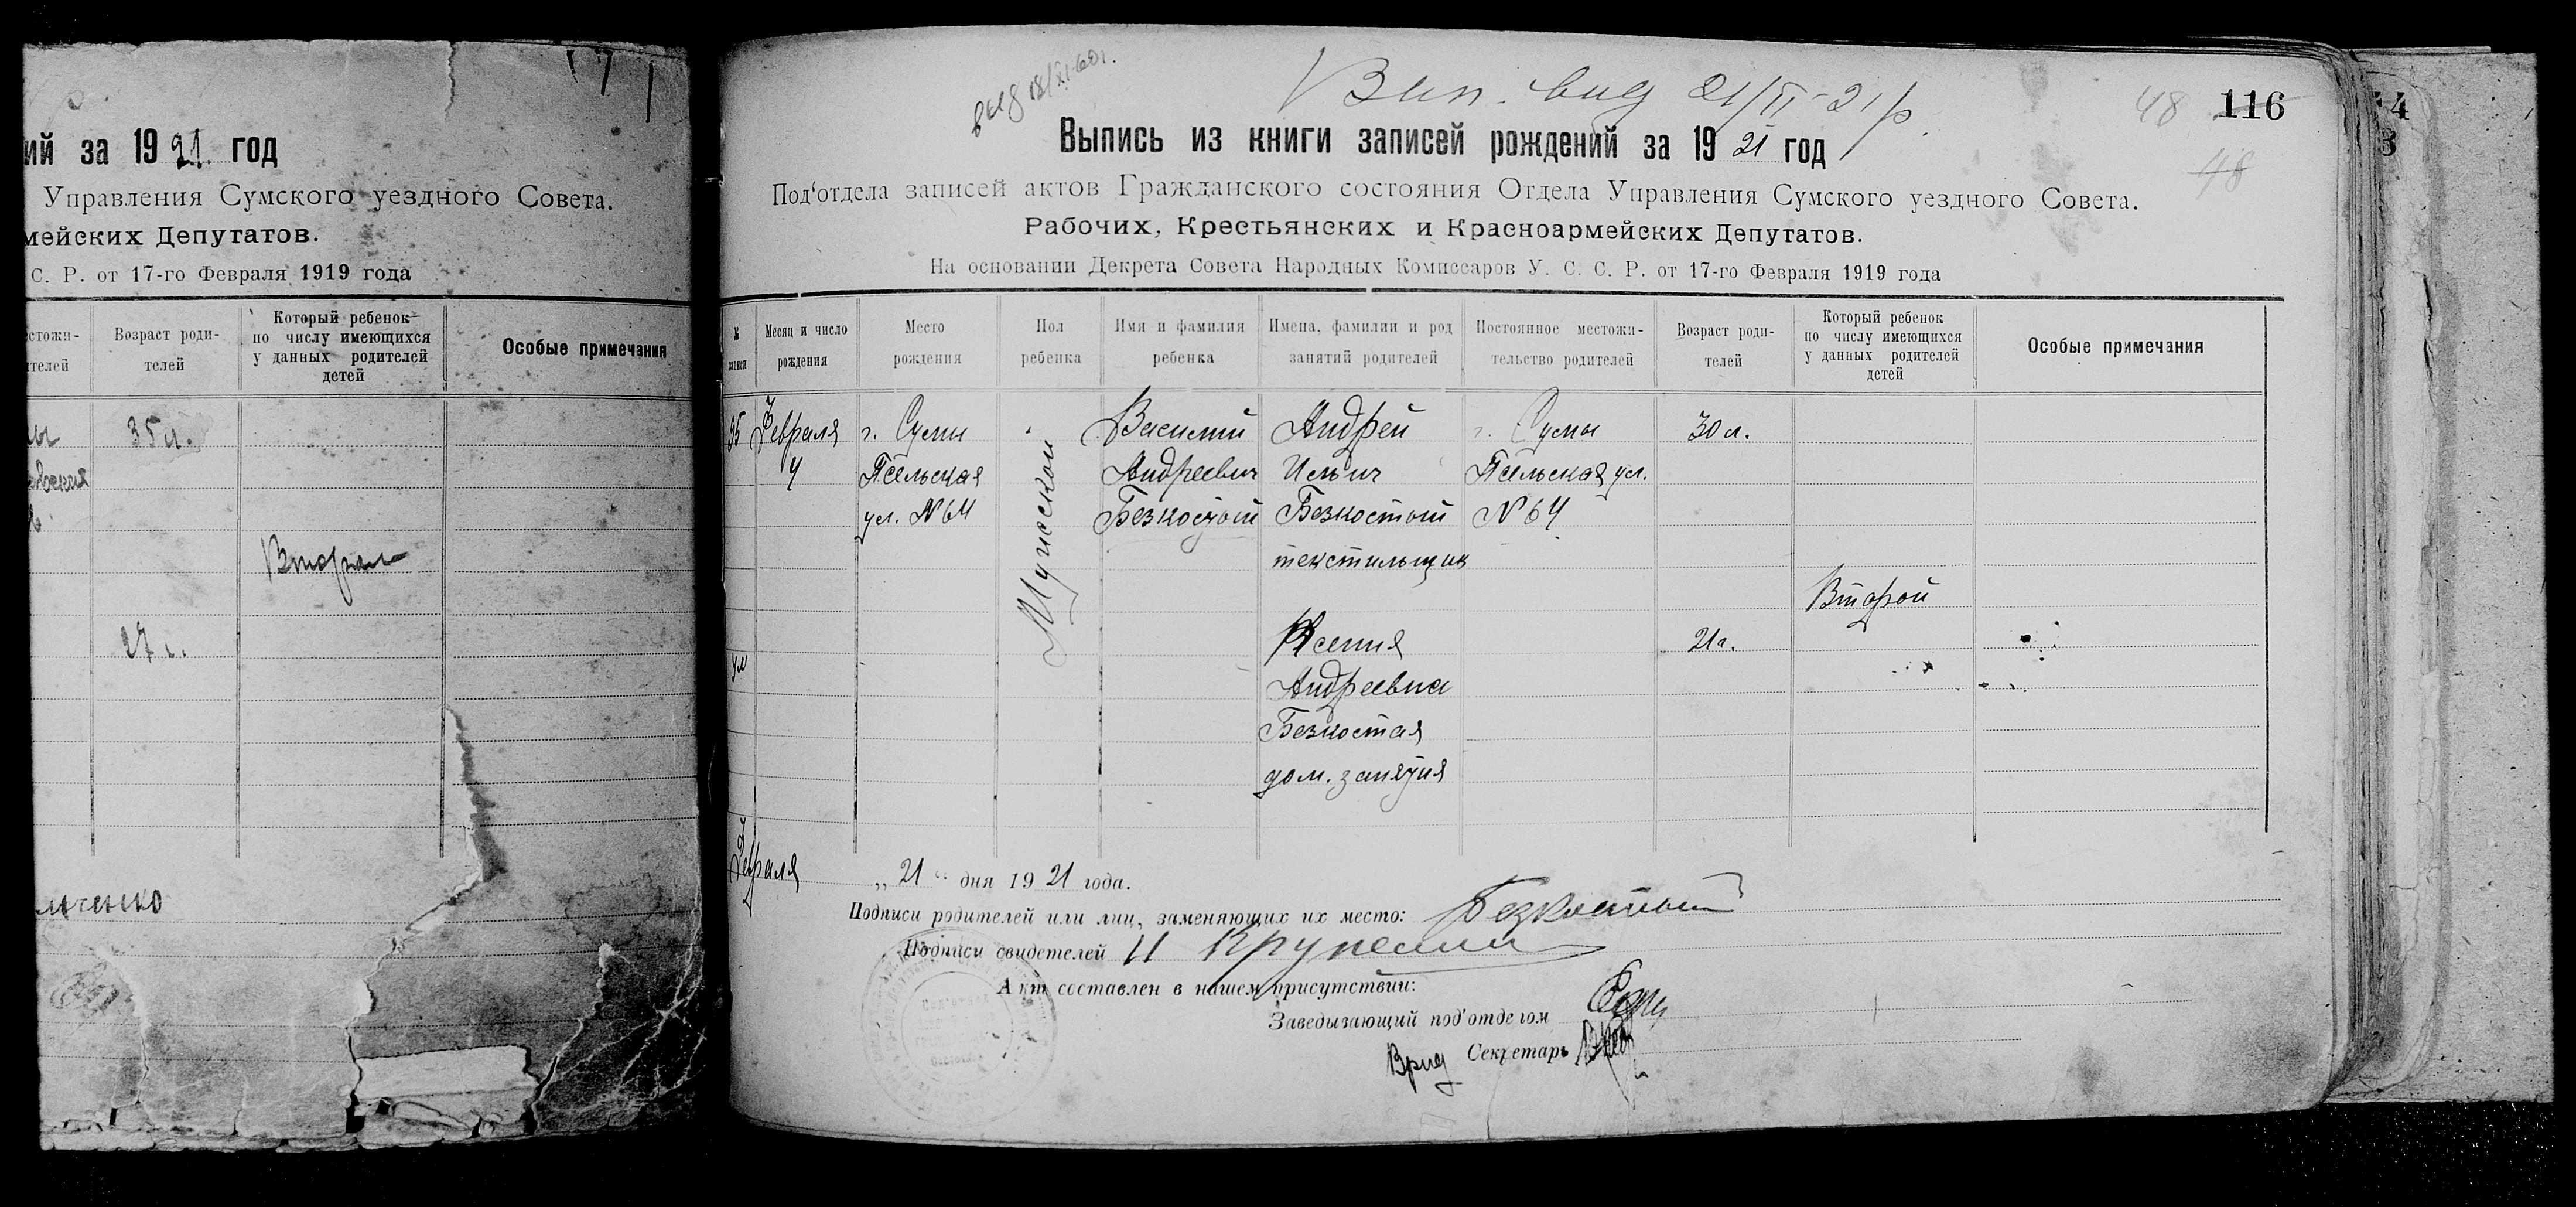 ий за 1921 год
Управления Сумского уездного Совета.
мейских Депутатов.
С. Р. от 17-го Февраля 1919 года
стожи-
ителей
Возраст роди-
телей
Который ребенок
по числу имеющихся
у данных родителей
детей
Особые примечания
35 л.
Вторая
27 л.
выд 18/XI-60г.
Вип. вид 21/II-21 р.
48 116
48
Выпись из книги записей рождений за 1921 год
Под'отдела записей актов Гражданского состояния Отдела Управления Сумского уездного Совета.
Рабочих, Крестьянских и Красноармейских Депутатов.
На основании Декрета Совета Народных Комиссаров У. С. С. Р. от 17-го Февраля 1919 года
№
записи
Месяц и число
рождения
Место
рождения
Пол
ребенка
Имя и фамилия
ребенка
Имена, фамилии и род
занятий родителей
Постоянное местожи-
тельство родителей
Возраст роди-
телей
Который ребенок
по числу имеющихся
у данных родителей
детей
Особые примечания
95
Февраля
4
г. Сумы
Псельская
ул. № 64
Мужской
Василий
Андреевич
Безкостый
Андрей
Ильич
Безкостый
текстильщик
Ксения
Андреевна
Безкостая
дом. занятия
г. Сумы
Псельская ул.
№ 64
30 л.
21 г.
Второй
Февраля „21“ дня 1921 года.
Подписи родителей или лиц, заменяющих их место: Безкостый
Подписи свидетелей
Акт составлен в нашем присутствии:
Заведывающий под'отделом
Врид Секретарь